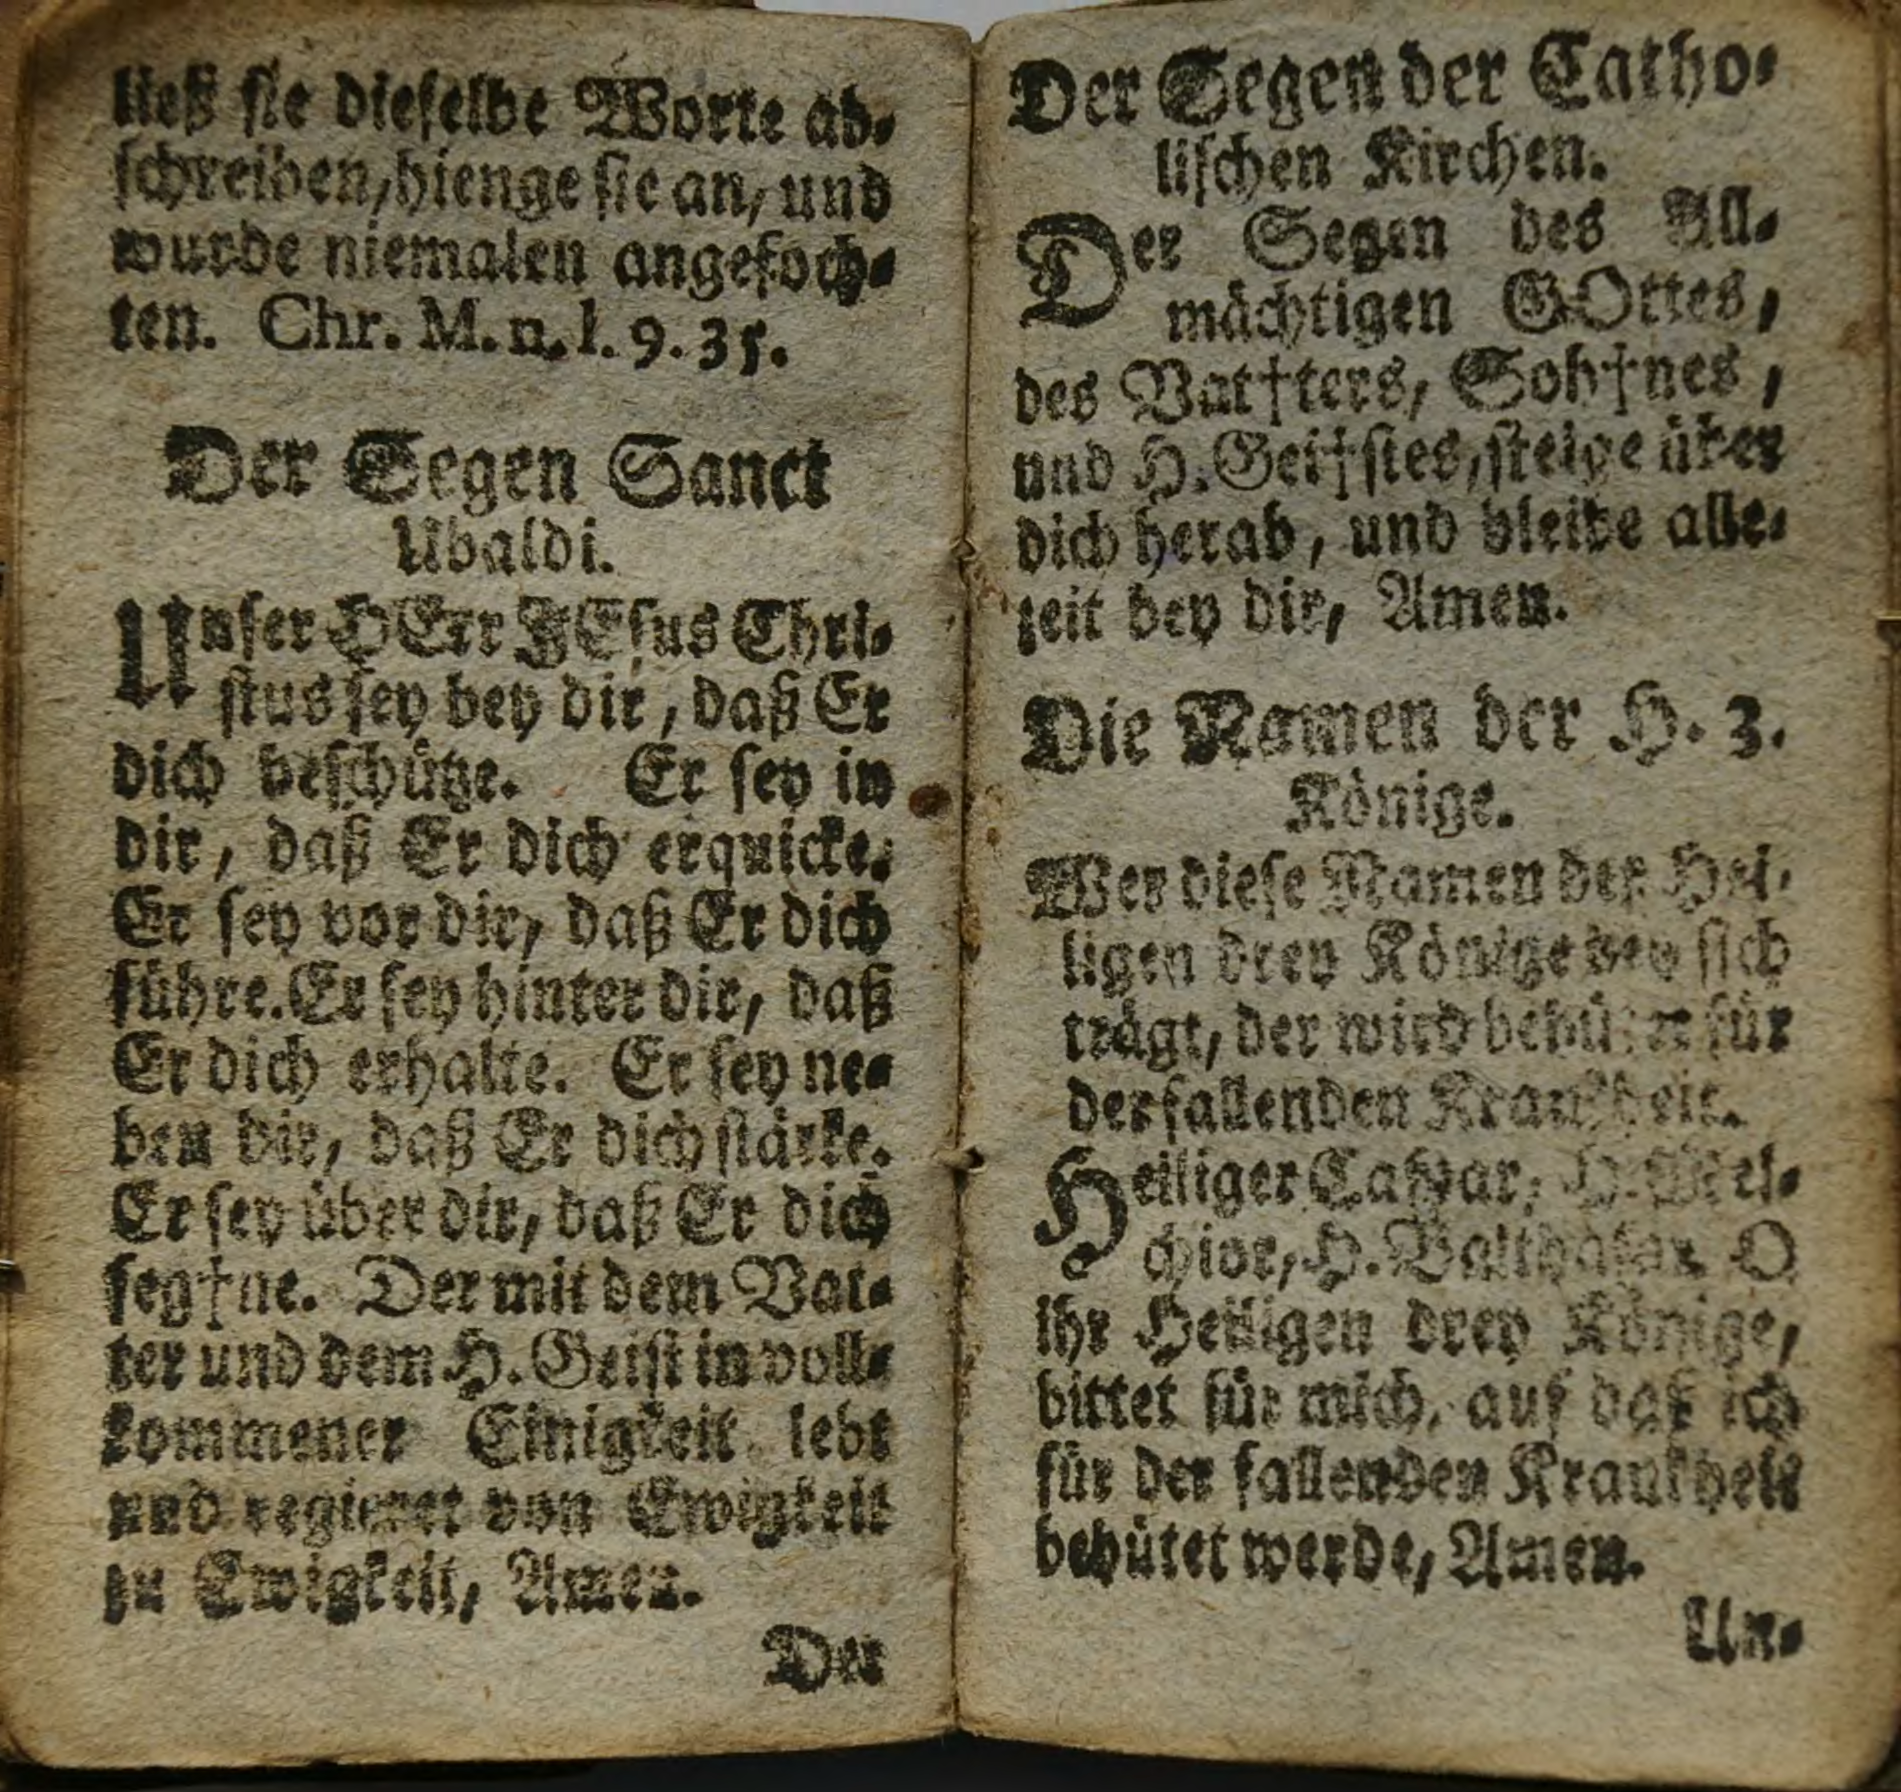 ließ sie dieselbe Worte ab-
schreiben, hienge sie an, und
wurde niemalen angefoch-
ten. Chr. M. n. l. 9. 35.
Der Segen Sanct
Ubaldi.
Unser HErr JEsus Chri-
stus sey bey dir, daß Er
dich beschütze. Er sey in
dir, daß Er dich erquicke.
Er sey vor dir, daß Er dich
führe. Er sey hinter dir, daß
Er dich erhalte. Er sey ne-
ben dir, daß Er dich stärke.
Er sey über dir, daß Er dich
seg†ne. Der mit dem Vat-
ter und dem H. Geist in voll-
kommener Einigkeit lebt
und regieret von Ewigkeit
zu Ewigkeit, Amen.
Der
Der Segen der Catho-
lischen Kirchen.
Der Segen des All-
mächtigen GOttes,
des Vat†ters, Soh†nes,
und H. Gei†stes, steige über
dich herab, und bleibe alle-
zeit bey dir, Amen.
Die Namen der H. 3.
Könige.
Wer diese Namen der Hei-
ligen drey Könige bey sich
trägt, der wird behütet für
der fallenden Krankheit.
Heiliger Caspar, H. Mel-
chior, H. Balthasar. O
ihr Heiligen drey Könige,
bittet für mich, auf daß ich
für der fallenden Krankheit
behütet werde, Amen.
Un-